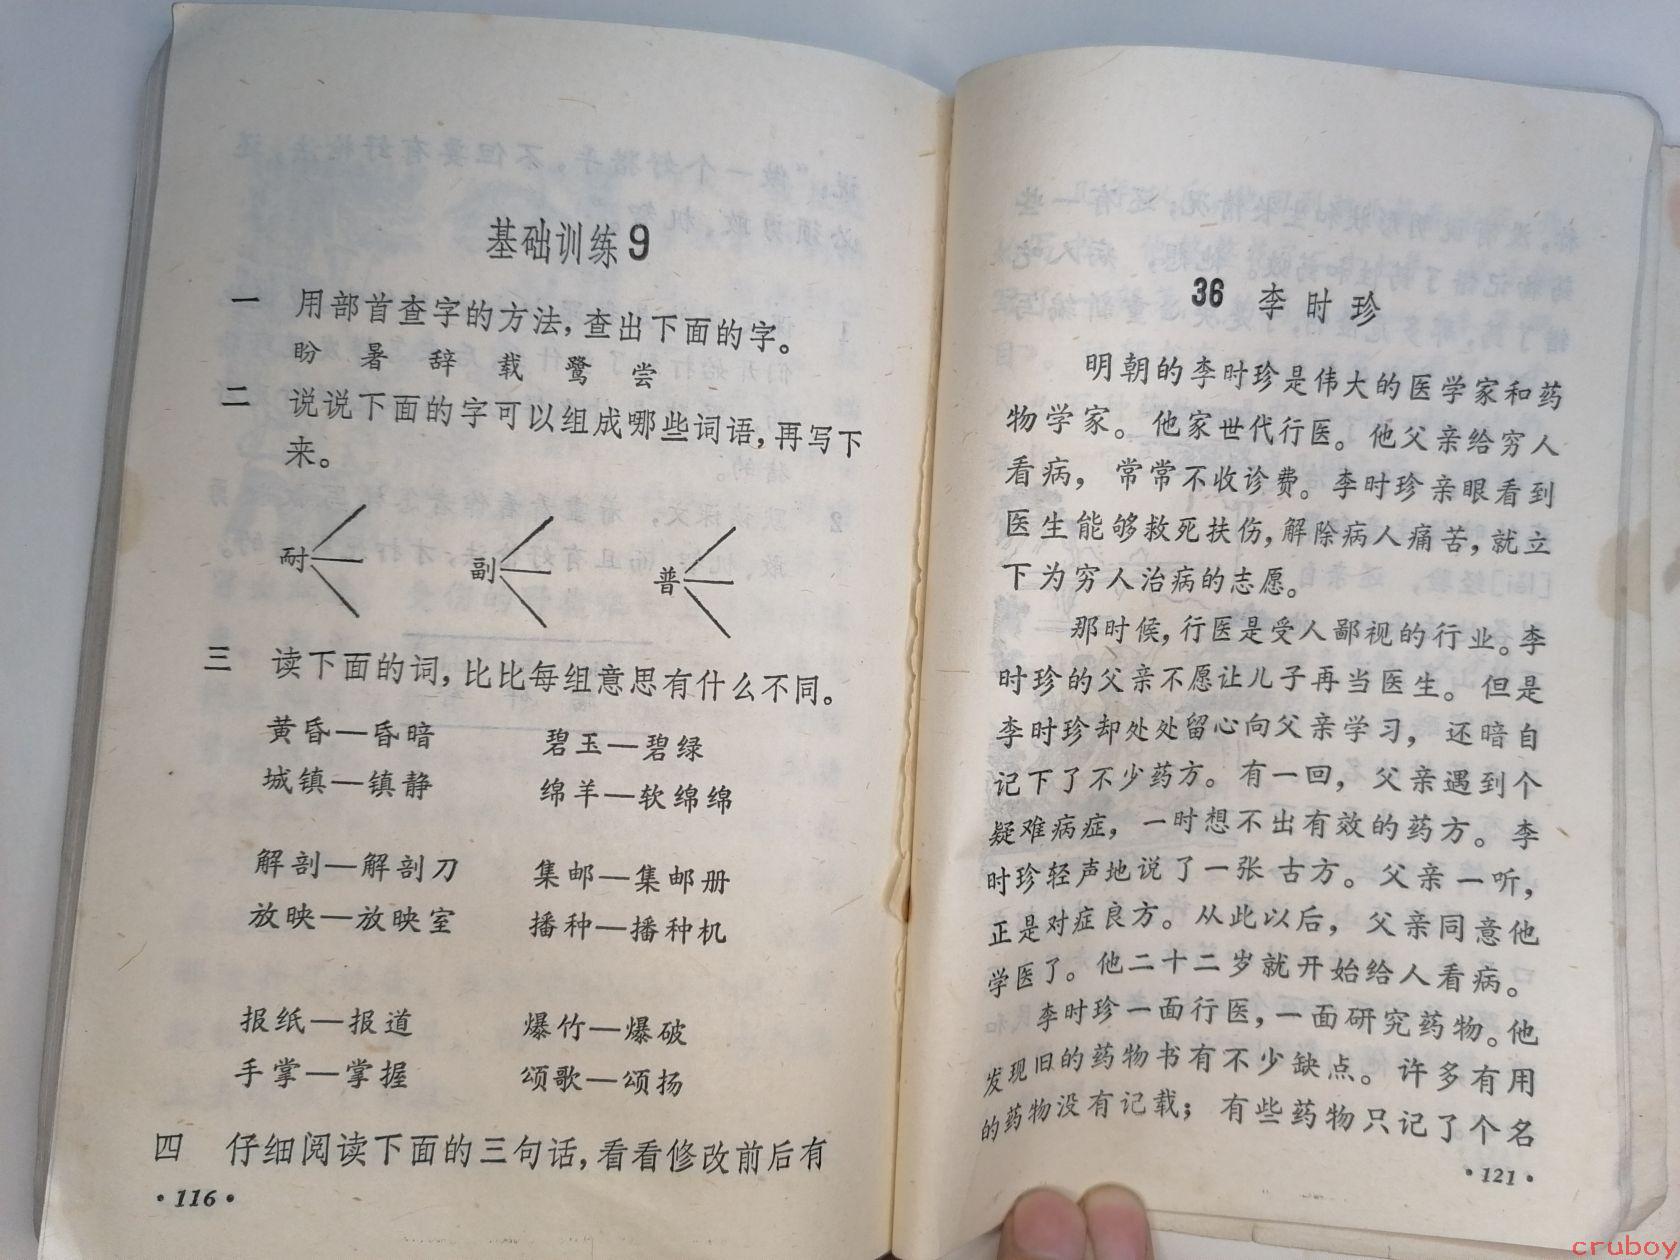 基础训练9
一 用部首查字的方法,查出下面的字。
盼 暑 辞 载 鹭 尝
二 说说下面的字可以组成哪些词语,再写下
来。
耐 副 普
三 读下面的词,比比每组意思有什么不同。
黄昏—昏暗 碧玉—碧绿
城镇—镇静 绵羊—软绵绵
解剖—解剖刀 集邮—集邮册
放映—放映室 播种—播种机
报纸—报道 爆竹—爆破
手掌—掌握 颂歌—颂扬
四 仔细阅读下面的三句话,看看修改前后有
·116·
36 李时珍
明朝的李时珍是伟大的医学家和药
物学家。他家世代行医。他父亲给穷人
看病，常常不收诊费。李时珍亲眼看到
医生能够救死扶伤,解除病人痛苦,就立
下为穷人治病的志愿。
那时候,行医是受人鄙视的行业。李
时珍的父亲不愿让儿子再当医生。但是
李时珍却处处留心向父亲学习，还暗自
记下了不少药方。有一回，父亲遇到个
疑难病症，一时想不出有效的药方。李
时珍轻声地说了一张古方。父亲一听，
正是对症良方。从此以后，父亲同意他
学医了。他二十二岁就开始给人看病。
李时珍一面行医,一面研究药物。他
发现旧的药物书有不少缺点。许多有用
的药物没有记载；有些药物只记了个名
·121·
cruboy